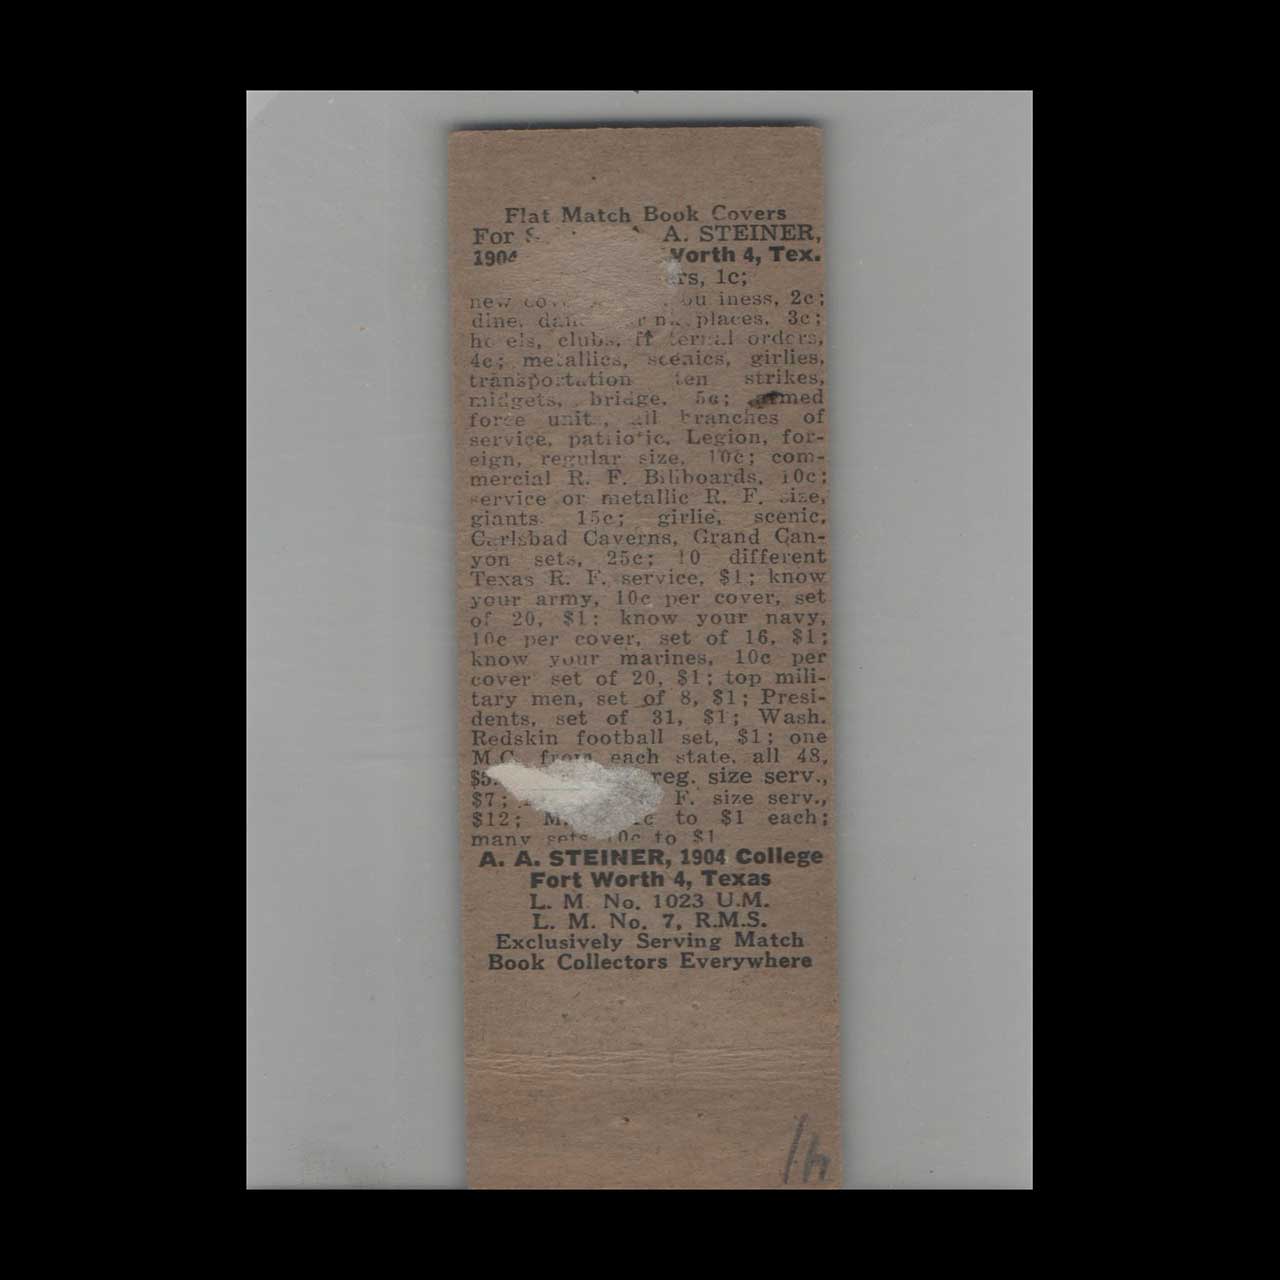 Flat Match Book Covers
For A. STEINER,
1904 Worth 4, Tex.
1c;
new iness, 2c;
dine, places, 3c;
hotels, clubs, orders,
4c; metallics, scenics, girlies,
transportation ten strikes,
midgets, bridge, 5c; armed
force units, all branches of
service, patriotic, Legion, for-
eign, regular size, 10c; com-
mercial R. F. Billboards, 10c;
service or metallic R. F. size,
giants 15c; girlie, scenic,
Carlsbad Caverns, Grand Can-
yon sets, 25c; 10 different
Texas R. F. service, $1; know
your army, 10c per cover, set
of 20, $1; know your navy,
10c per cover, set of 16, $1;
know your marines, 10c per
cover set of 20, $1; top mili-
tary men, set of 8, $1; Presi-
dents, set of 31, $1; Wash.
Redskin football set, $1; one
M.C. from each state, all 48,
reg. size serv.,
$7; F. size serv.,
$12; to $1 each;
many sets 10c to $1
A. A. STEINER, 1904 College
Fort Worth 4, Texas
L. M. No. 1023 U.M.
L. M. No. 7, R.M.S.
Exclusively Serving Match
Book Collectors Everywhere